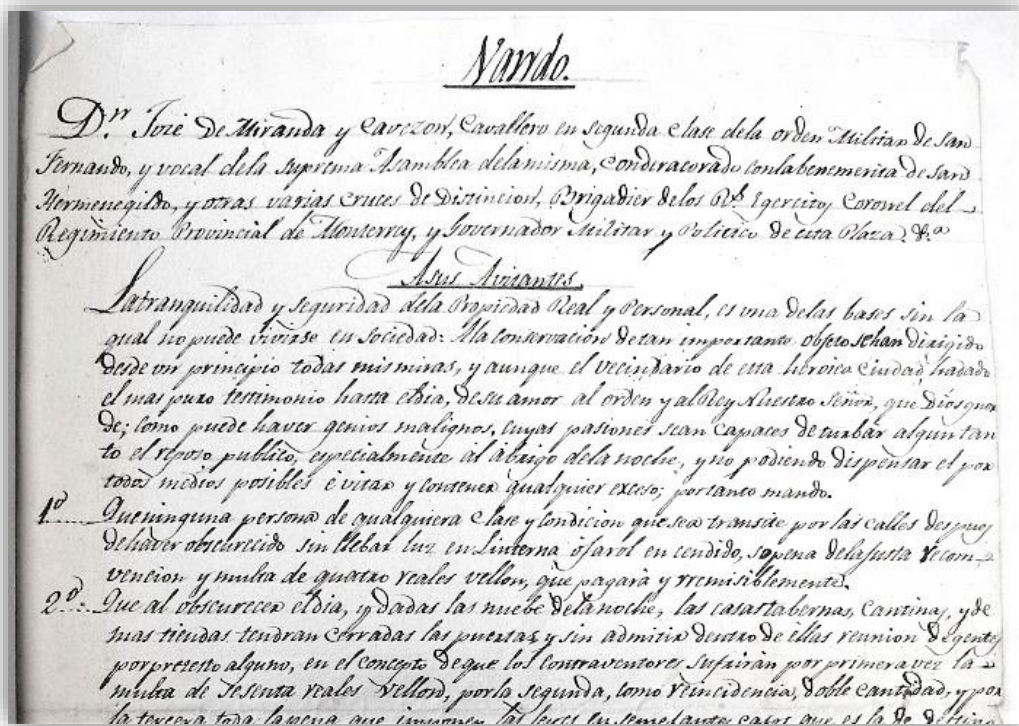 Vando.
D.ⁿ José de Miranda y Cavezon, Cavallero en segunda clase dela orden Militar de San
Fernando, y vocal dela suprema Asamblea delamisma, Conderacorado conla benemerita de san
Hermenegildo, y otras varias cruces de Distincion, Brigadier delos R.ˢ Egercitos, Coronel del
Regimiento Provincial de Monterrey, y Governador Militar y Politico de esta Plaza. &.ª
Asus Avitantes.
La tranquilidad y seguridad dela Propiedad Real y Personal, es una delas bases sin la
qual no puede vivirse en sociedad: Ala conservacion detan importante objeto sehan dirigido
desde un principio todas mis miras, y aunque el vecindario de esta heroica Ciudad, hadado
el mas puro testimonio hasta eldia, desu amor al orden y alRey Nuestro Señor, que Dios guar
de; como puede haver genios malignos, cuyas pasiones sean capaces de turbar algun tan
to el reposo publico, especialmente al abrigo delanoche, y no podiendo dispensar el por
todos medios posibles evitar y contener qualquier exceso; portanto mando.
1º Queninguna persona de qualquiera clase y condicion que sea transite por las calles despues
dehaver obscurecido sin llebar luz en Linterna ó farol encendido, sopena delajusta recom-
vencion y multa de quatro reales vellon, que pagará yrremisiblemente.
2º Que al obscurecer eldia, y dadas las nuebe delanoche, las casas tabernas, Cantinas, y de
mas tiendas tendran cerradas las puertas y sin admitir dentro de ellas reunion de gentes
por pretesto alguno, en el concepto de que los contraventores sufrirán por primera vez la
multa de sesenta reales vellon, por la segunda, como reincidencia, doble cantidad, y por
la tercera toda la pena que imponen las leyes en semejantes casos que es la de